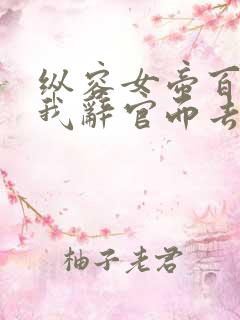 纵容女帝百
我辞官而去
柚子老君